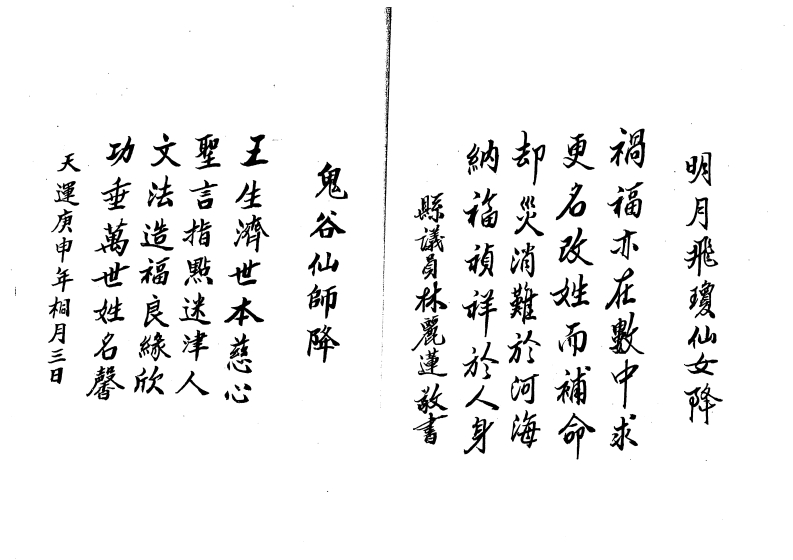 明月飛瓊仙女降
禍福亦在數中求
更名改姓而補命
却災消難於河海
納福禎祥於人身
縣議員林麗蓮敬書
鬼谷仙師降
王生濟世本慈心
聖言指點迷津人
文法造福良緣欣
功垂萬世姓名馨
天運庚申年相月三日